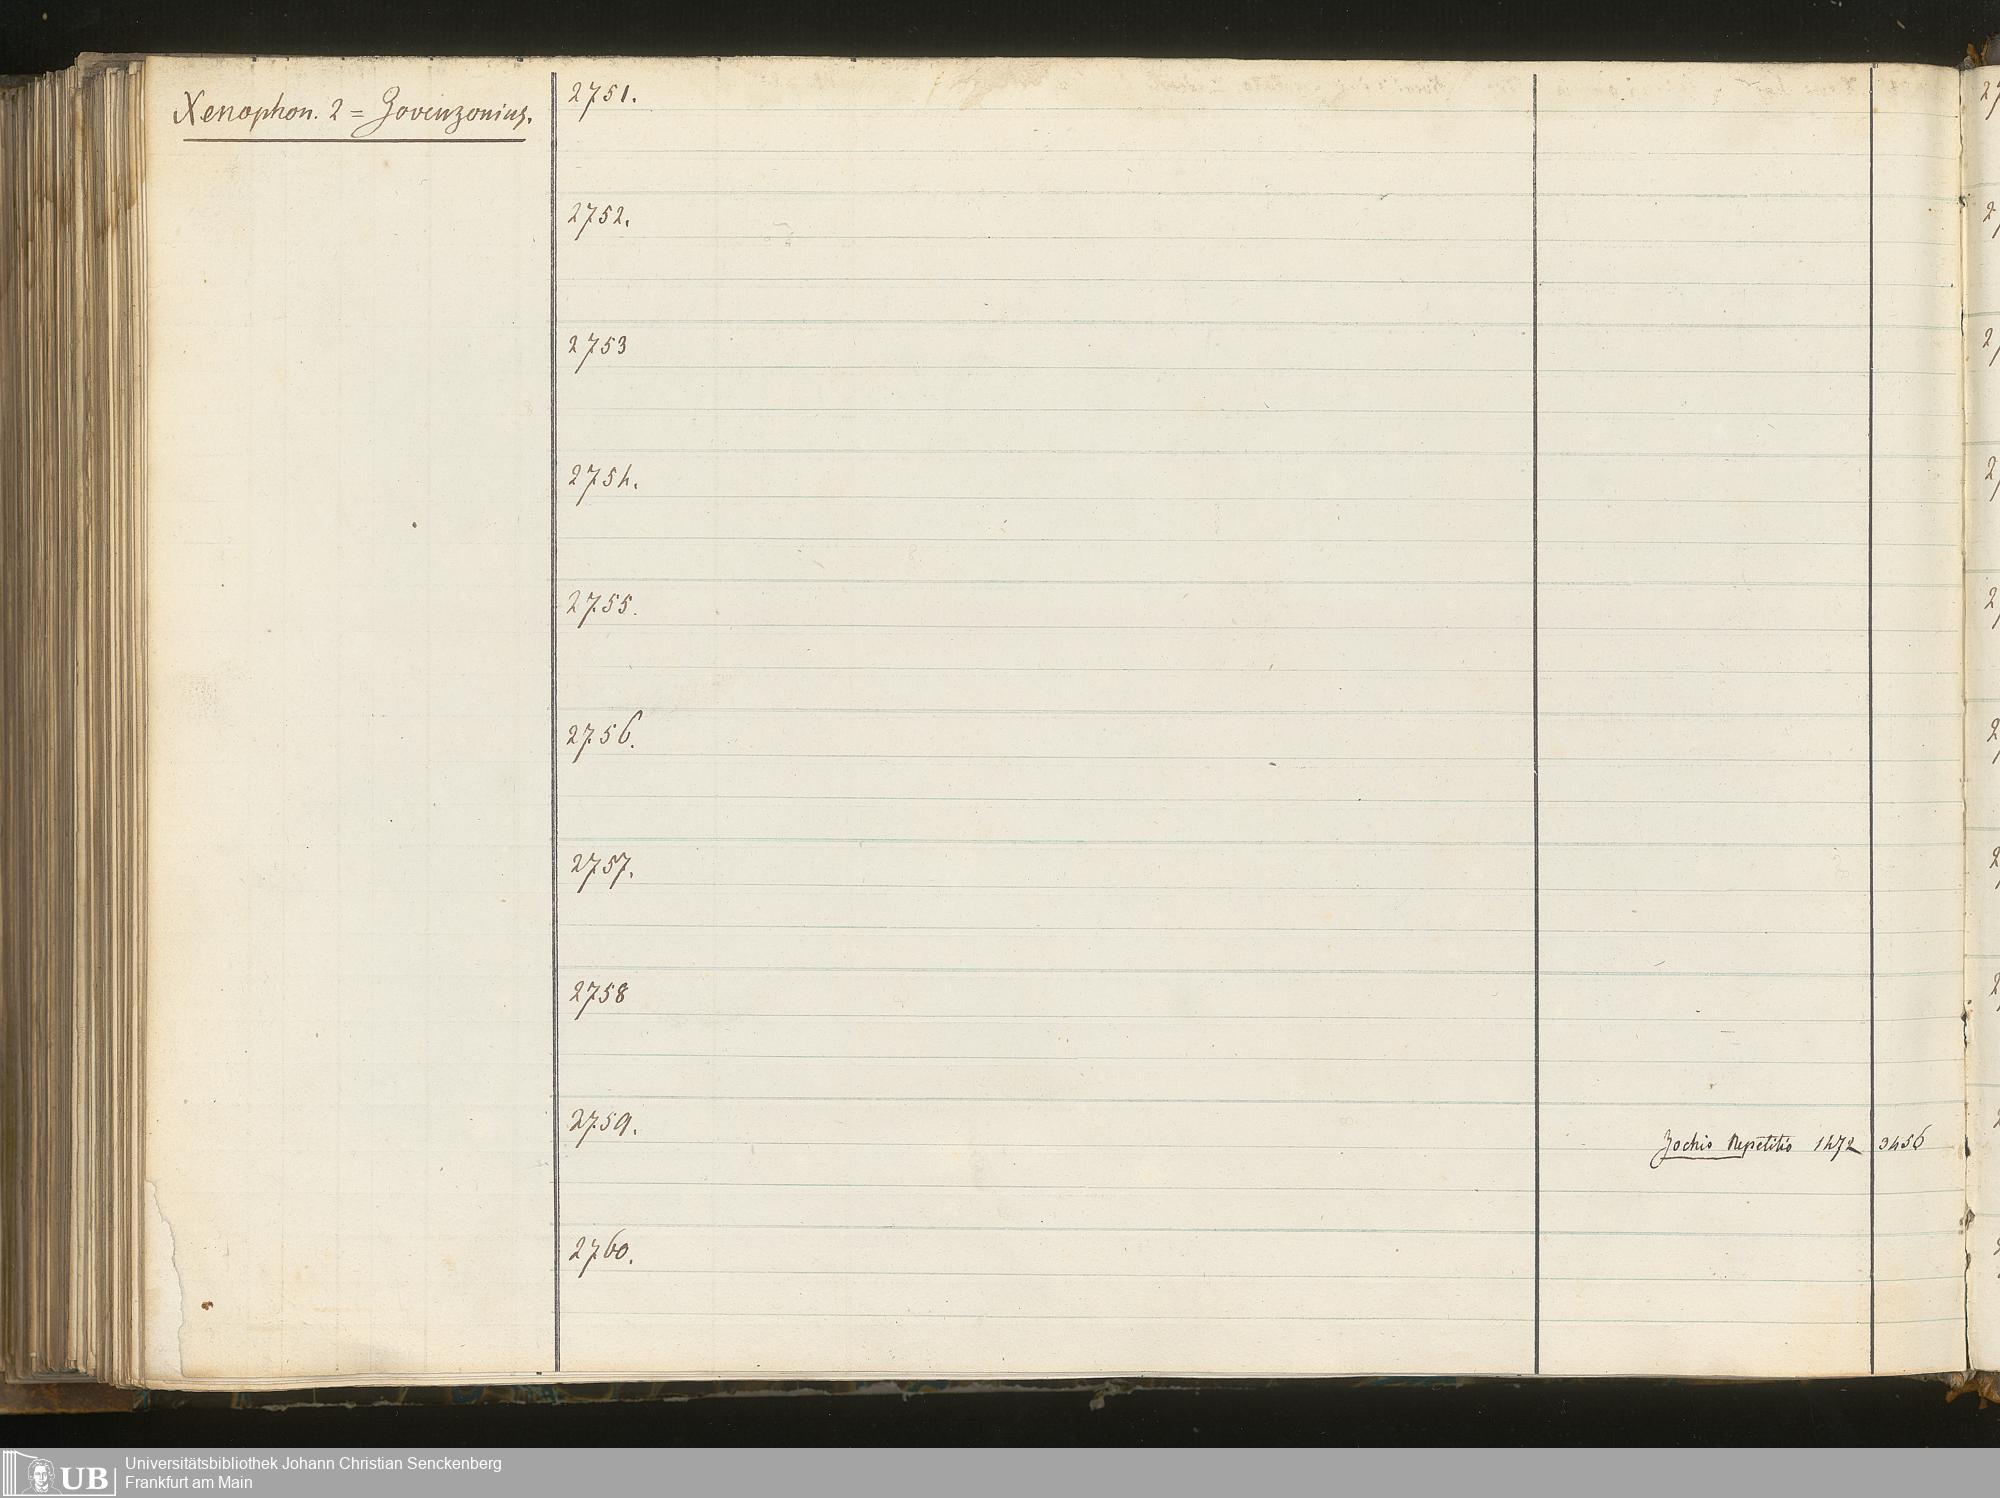 Xenophon. 2 = Zovenzonius.
2751.
2752.
2753
2754.
2755.
2756.
2757.
2758
2759.
Zochis Repetitio 1472 3456
2760.
UB
Universitätsbibliothek Johann Christian Senckenberg
Frankfurt am Main